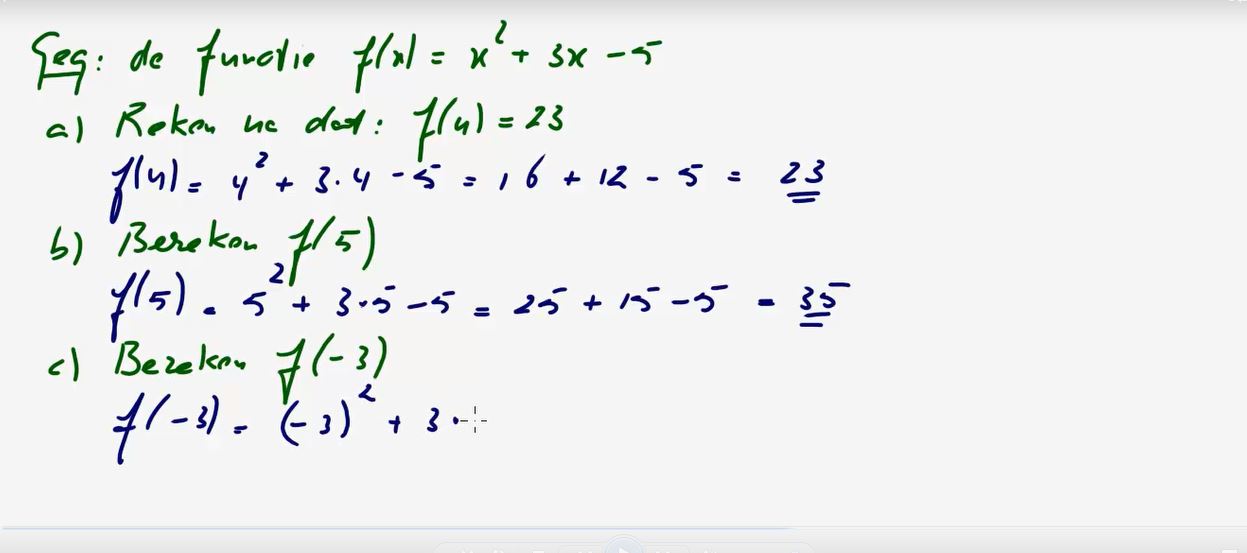 Geg: de functie f(x) = x² + 3x - 5
a) Reken na dat: f(4) = 23
f(4) = 4² + 3·4 - 5 = 16 + 12 - 5 = 23
b) Bereken f(5)
f(5) = 5² + 3·5 - 5 = 25 + 15 - 5 = 35
c) Bereken f(-3)
f(-3) = (-3)² + 3·